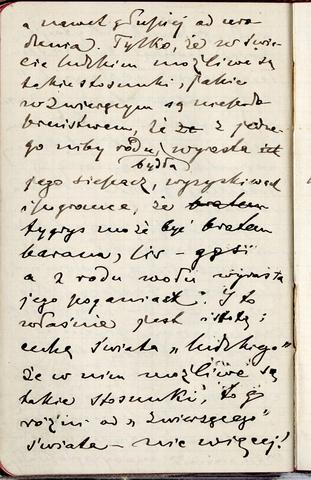 a nawet głupiej od uro
dzenia. Tylko, że w świe-
cie ludzkim możliwe są
takie stosunki, jakie
w zwierzęcym są niepodo
bieństwem, że z jedne-
go niby rodu wyrasta
bydła
jego siepacz, wyzyskiwacz
i ignorance, że bratem
tygrys może być bratem
barana, lis – gęsi
a z rodu wołu wyrasta
jego poganiacz. I to
właśnie jest istotą i
cechą świata „ludzkiego"
że w nim możliwe są
takie stosunki, to go
różni od „zwierzęcego"
świata – nic więcej!